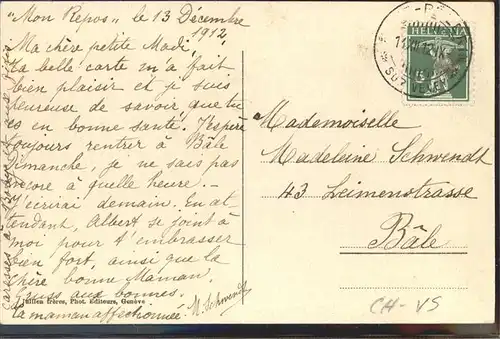 "Mon Repos" le 13 Décembre
1912
Ma chère petite Madi,
Ta belle carte m'a fait
bien plaisir et je suis
heureuse de savoir que tu
es en bonne santé. J'espère
toujours rentrer à Bâle
Dimanche, je ne sais pas
encore à quelle heure. -
J'écrirai demain. En at
tendant, Albert se joint à
moi pour t'embrasser
bien fort, ainsi que ta
chère bonne Maman.
aux bonnes.
ta maman affectionnée.
M. Schwendt
Caresses à
Jullien frères, Phot. Editeurs, Genève
HELVETIA
5
SUR VEVEY
Mademoiselle
Madeleine Schwendt
43 Leimenstrasse
Bâle
CH-VS